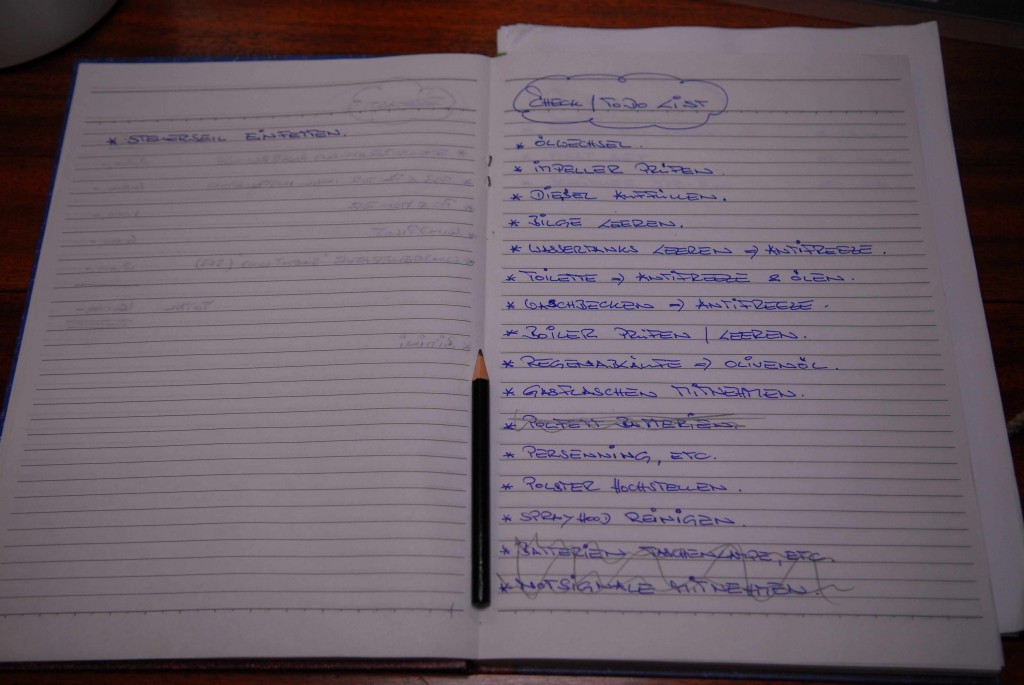 * STEUERSEIL EINFETTEN.
CHECK / TODO LIST
* ÖLWECHSEL.
* IMPELLER PRÜFEN.
* DIESEL AUFFÜLLEN.
* BILGE LEEREN.
* WASSERTANKS LEEREN => ANTIFREEZE.
* TOILETTE => ANTIFREEZE & ÖLEN.
* WASCHBECKEN => ANTIFREEZE.
* BOILER PRÜFEN / LEEREN.
* REGENABLÄUFE => OLIVENÖL.
* GASFLASCHEN MITNEHMEN.
* BATTERIEN.
* PERSENNING, ETC.
* POLSTER HOCHSTELLEN.
* SPRAYHOOD REINIGEN.
* BATTERIEN TASCHENLAMPE, ETC.
* NOTSIGNALE MITNEHMEN.